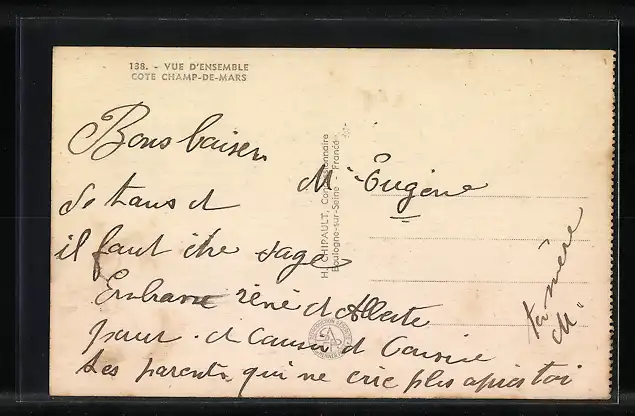 138. - VUE D'ENSEMBLE
COTE CHAMP-DE-MARS
Bons baisers
de tous et
il faut être sage
Embrasse réné et Alberte
pour . et
tes parents qui ne crie plus après toi
Mr Eugène
ta mère
M.
H. CHIPAULT, Concessionnaire
Boulogne-sur-Seine - France